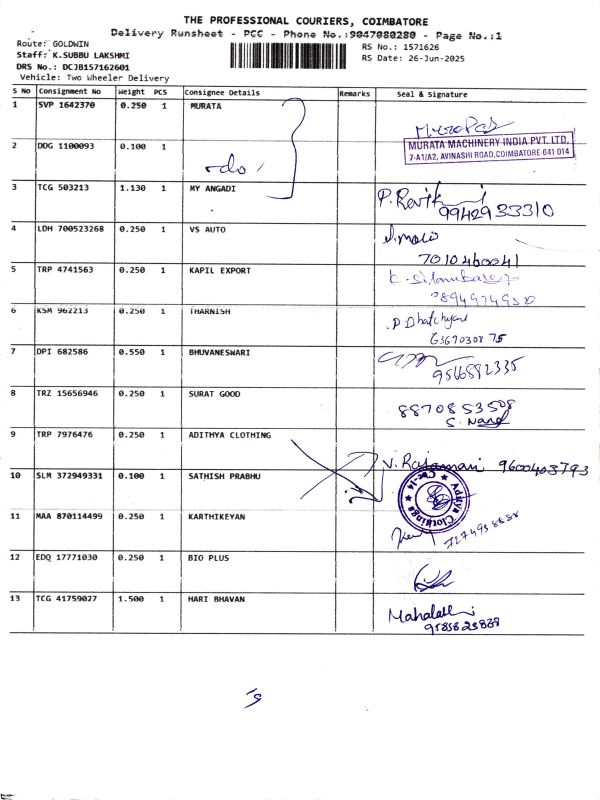 THE PROFESSIONAL COURIERS, COIMBATORE
Delivery Runsheet - PCC - Phone No.:9047080280 - Page No.:1
Route: GOLDWIN
Staff: K.SUBBU LAKSHMI
DRS No.: DCJB157162601
Vehicle: Two Wheeler Delivery
RS No.: 1571626
RS Date: 26-Jun-2025
S No Consignment No Weight PCS Consignee Details Remarks Seal & Signature
1 SVP 1642370 0.250 1 MURATA
MURATA MACHINERY INDIA PVT. LTD,
7-A1/A2, AVINASHI ROAD, COIMBATORE-641 014
2 DDG 1100093 0.100 1
3 TCG 503213 1.130 1 MY ANGADI
9942933310
4 LDH 700523268 0.250 1 VS AUTO
7010460041
5 TRP 4741563 0.250 1 KAPIL EXPORT
6 KSM 962213 0.250 1 THARNISH
7 DPI 682586 0.550 1 BHUVANESWARI
9566892335
8 TRZ 15656946 0.250 1 SURAT GOOD
8870853508
9 TRP 7976476 0.250 1 ADITHYA CLOTHING
V. Rajamani 9600403793
10 SLM 372949331 0.100 1 SATHISH PRABHU
11 MAA 870114499 0.250 1 KARTHIKEYAN
12 EDQ 17771030 0.250 1 BIO PLUS
13 TCG 41759027 1.500 1 HARI BHAVAN